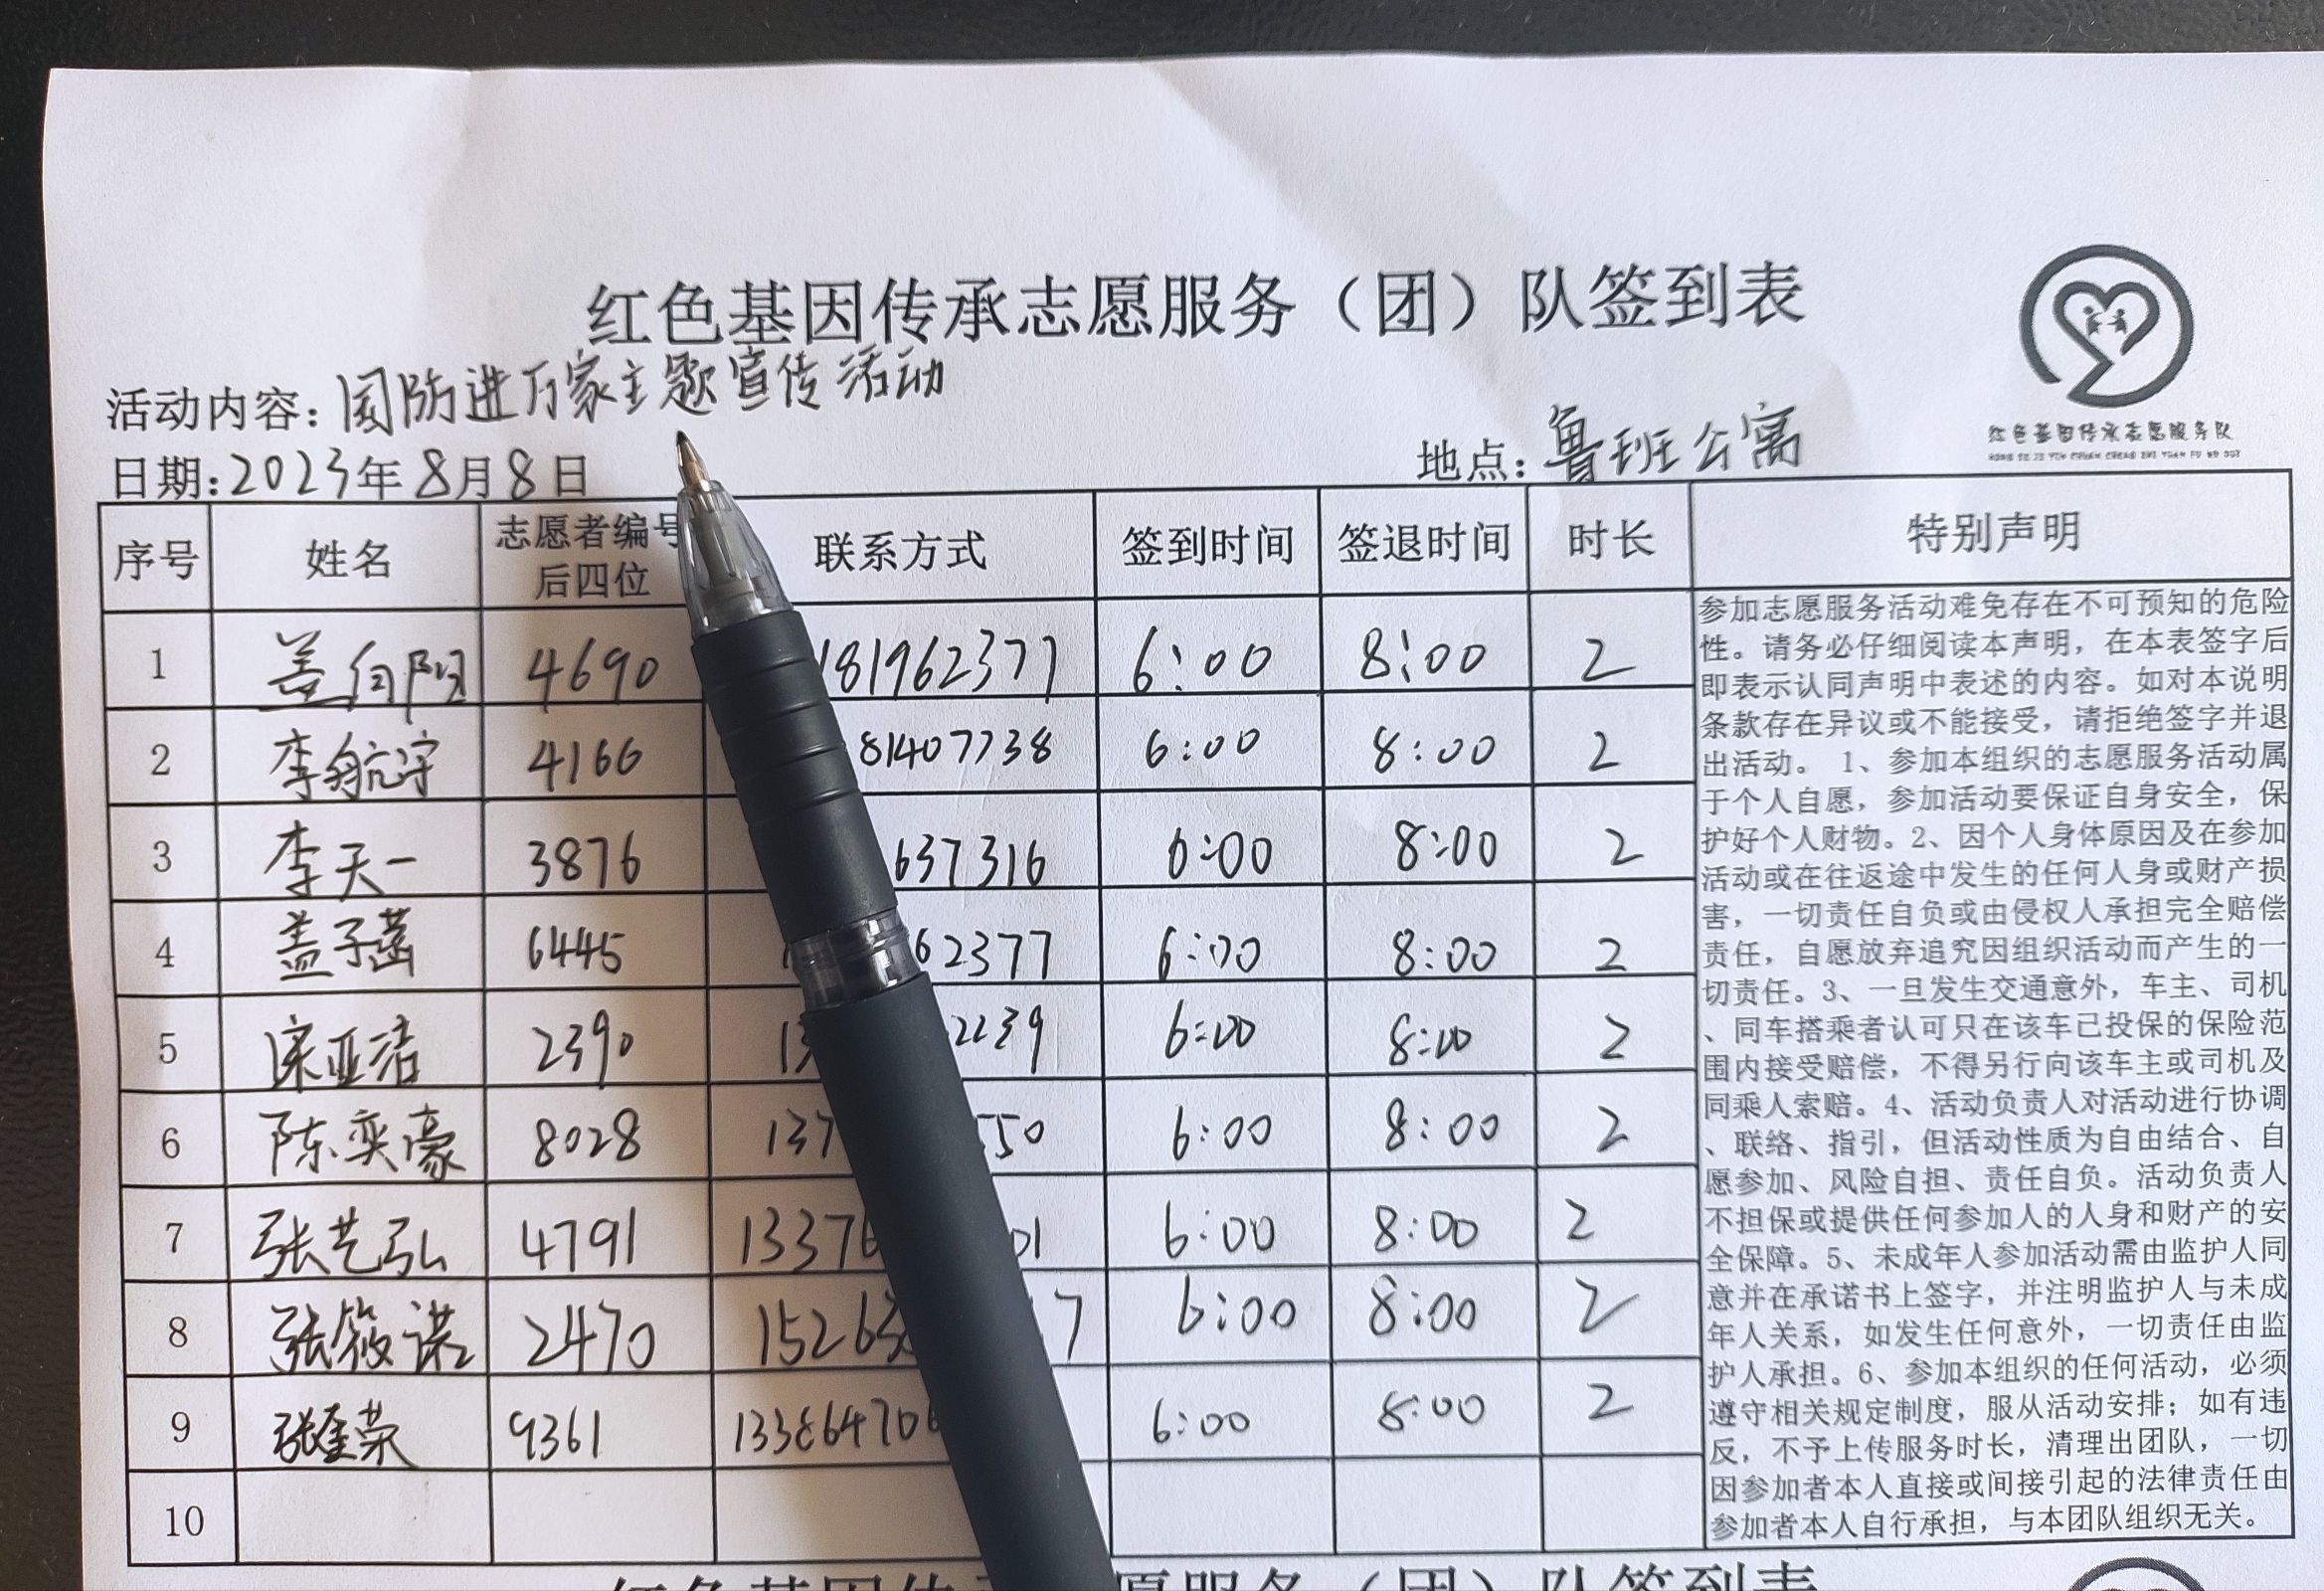 红色基因传承志愿服务（团）队签到表
活动内容：国防进万家主题宣传活动
日期：2023年8月8日
地点：鲁班公寓
红色基因传承志愿服务队
HONG SE JI YIN CHUAN CHENG ZHI YUAN FU WU DUI
序号 姓名 志愿者编号后四位 联系方式 签到时间 签退时间 时长 特别声明
1 盖向阳 4690 181962377 6:00 8:00 2
2 李航宇 4166 81407738 6:00 8:00 2
3 李天一 3876 637316 6:00 8:00 2
4 盖子菡 6445 62377 6:00 8:00 2
5 宋亚洁 2390 13 2239 6:00 8:00 2
6 陈奕豪 8028 137 550 6:00 8:00 2
7 张艺弘 4791 1337 01 6:00 8:00 2
8 张筱诺 2470 15263 7 6:00 8:00 2
9 张奎荣 9361 133864706 6:00 8:00 2
10
参加志愿服务活动难免存在不可预知的危险
性。请务必仔细阅读本声明，在本表签字后
即表示认同声明中表述的内容。如对本说明
条款存在异议或不能接受，请拒绝签字并退
出活动。 1、参加本组织的志愿服务活动属
于个人自愿，参加活动要保证自身安全，保
护好个人财物。2、因个人身体原因及在参加
活动或在往返途中发生的任何人身或财产损
害，一切责任自负或由侵权人承担完全赔偿
责任，自愿放弃追究因组织活动而产生的一
切责任。3、一旦发生交通意外，车主、司机
、同车搭乘者认可只在该车已投保的保险范
围内接受赔偿，不得另行向该车主或司机及
同乘人索赔。4、活动负责人对活动进行协调
、联络、指引，但活动性质为自由结合、自
愿参加、风险自担、责任自负。活动负责人
不担保或提供任何参加人的人身和财产的安
全保障。5、未成年人参加活动需由监护人同
意并在承诺书上签字，并注明监护人与未成
年人关系，如发生任何意外，一切责任由监
护人承担。6、参加本组织的任何活动，必须
遵守相关规定制度，服从活动安排；如有违
反，不予上传服务时长，清理出团队，一切
因参加者本人直接或间接引起的法律责任由
参加者本人自行承担，与本团队组织无关。
红色基因传 愿服务（团）队签到表